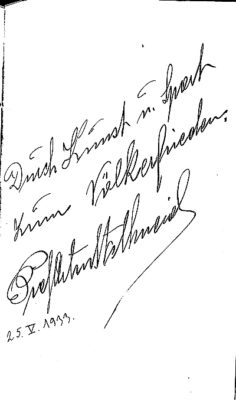 Durch Kunst u. Sport
zum Völkerfrieden.
Prof.
25. V. 1933.